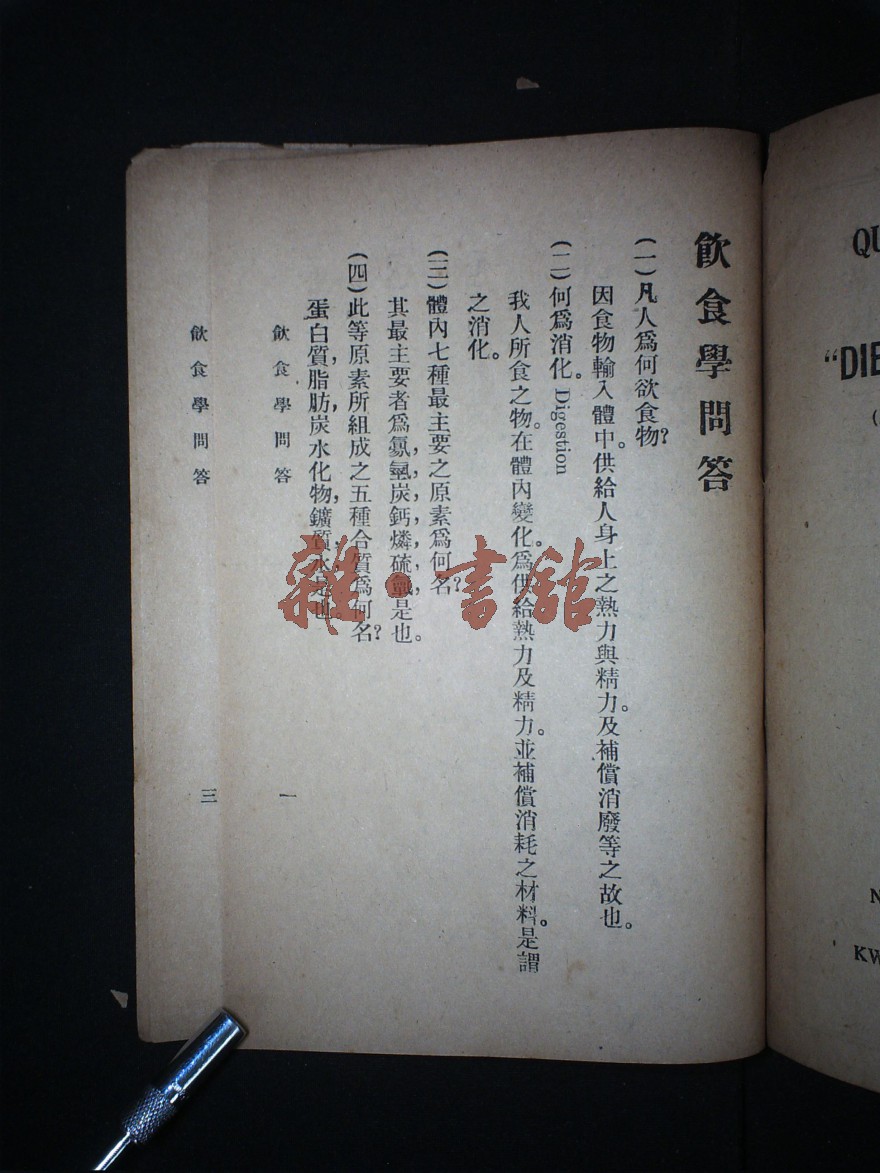 飲食學問答
(一)凡人爲何欲食物?
因食物輸入體中。供給人身上之熱力與精力。及補償消廢等之故也。
(二)何爲消化。Digestion
我人所食之物。在體內變化。爲供給熱力及精力。並補償消耗之材料。是謂
之消化。
(三)體內七種最主要之原素爲何名?
其最主要者爲氯,氫,炭,鈣,燐,硫,是也。
(四)此等原素所組成之五種合質爲何名?
蛋白質,脂肪,炭水化物,鑛質,水是也。
飲食學問答
一
飲食學問答
三
QU
"DIE
(
N
KW
雜·書館